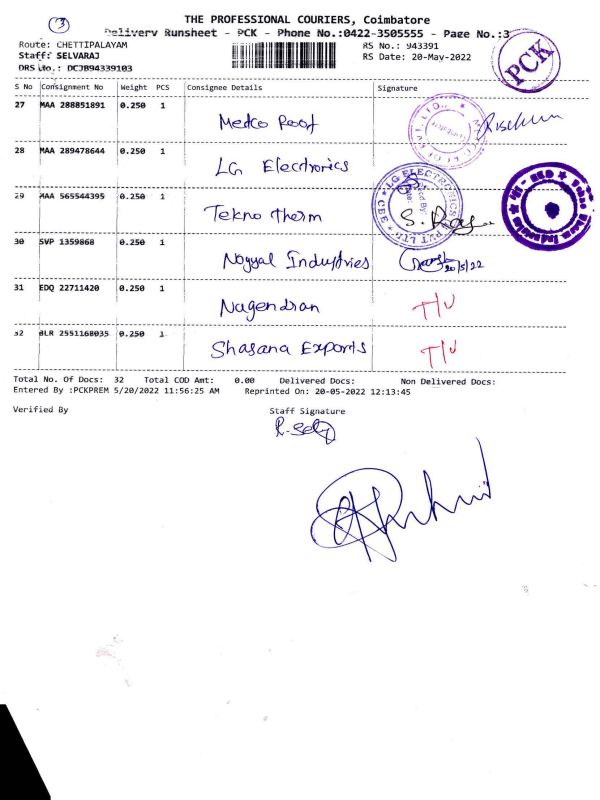 3
THE PROFESSIONAL COURIERS, Coimbatore
Delivery Runsheet - PCK - Phone No.:0422-3505555 - Page No.:3
Route: CHETTIPALAYAM
RS No.: 943391
Staff: SELVARAJ
RS Date: 20-May-2022
DRS No.: DCJB94339103
PCK
S No Consignment No Weight PCS Consignee Details Signature
27 MAA 288851891 0.250 1 Medco Roof
28 MAA 289478644 0.250 1 LG Electronics
29 MAA 565544395 0.250 1 Tekno therm S. Ras
LG ELECTRONICS
PVT LTD
CBE
30 SVP 1359868 0.250 1 Noyyal Industries 20/5/22
31 EDQ 22711420 0.250 1 Nagendran T/U
32 BLR 2551168035 0.250 1 Shasana Exports T/U
Total No. Of Docs: 32 Total COD Amt: 0.00 Delivered Docs: Non Delivered Docs:
Entered By :PCKPREM 5/20/2022 11:56:25 AM Reprinted On: 20-05-2022 12:13:45
Verified By Staff Signature